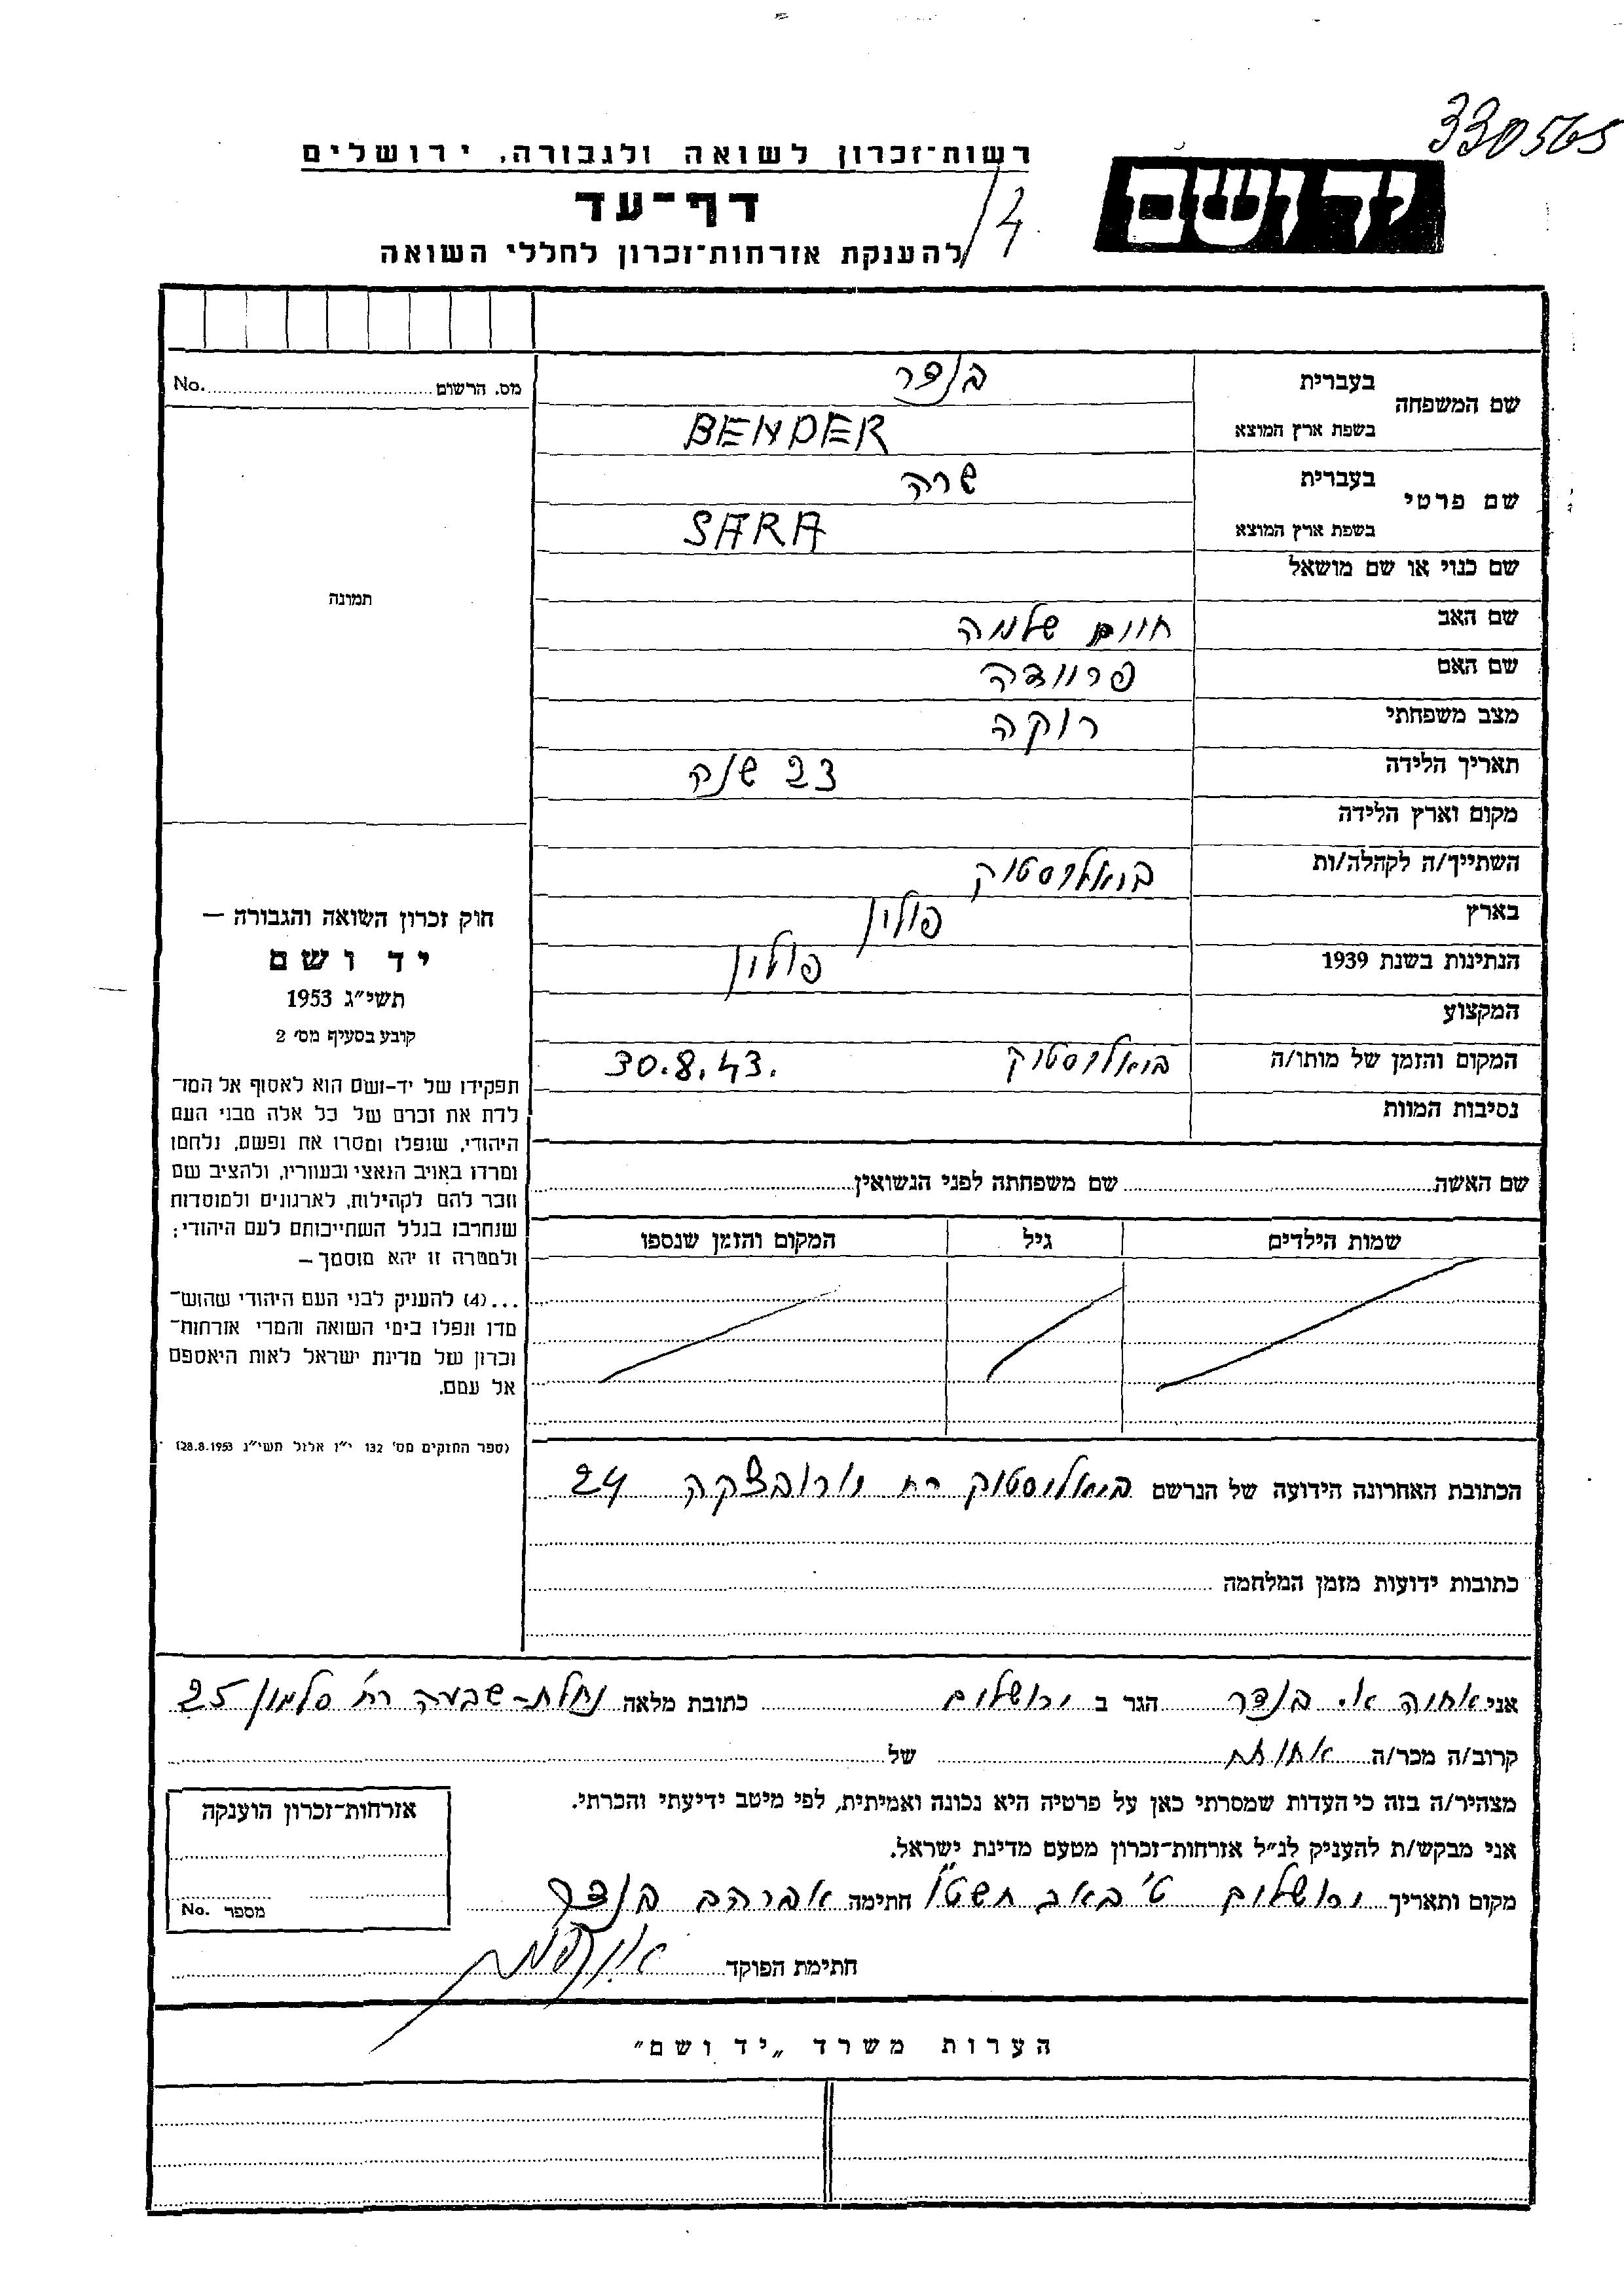 330565
רשות־זכרון לשואה ולגבורה, ירושלים
יד ושם
דף־עד
להענקת אזרחות־זכרון לחללי השואה
שם המשפחה בעברית בנדר
בשפת ארץ המוצא BENDER
שם פרטי בעברית שרה
בשפת ארץ המוצא SARA
שם כנוי או שם מושאל
שם האב חיים שלמה
שם האם פריידה
מצב משפחתי רוקה
תאריך הלידה 23 שנה
מקום וארץ הלידה
השתייך/ה לקהלה/ות ביאליסטוק
בארץ פולין
הנתינות בשנת 1939 פולין
המקצוע
המקום והזמן של מותו/ה ביאליסטוק 30.8.43.
נסיבות המוות
שם האשה שם משפחתה לפני הנשואין
שמות הילדים גיל המקום והזמן שנספו
הכתובת האחרונה הידועה של הנרשם ביאליסטוק רח יורובצקה 24
כתובות ידועות מזמן המלחמה
מס. הרשום No.
תמונה
חוק זכרון השואה והגבורה —
יד ושם
תשי״ג 1953
קובע בסעיף מס׳ 2
תפקידו של יד-ושם הוא לאסוף אל המו־
לדת את זכרם של כל אלה מבני העם
היהודי, שנפלו ומסרו את נפשם, נלחמו
ומרדו באויב הנאצי ובעוזריו, ולהציב שם
וזכר להם לקהילות, לארגונים ולמוסדות
שנחרבו בגלל השתייכותם לעם היהודי;
ולמטרה זו יהא מוסמך —
...(4) להעניק לבני העם היהודי שהוש־
מדו ונפלו בימי השואה והמרי אזרחות־
זכרון של מדינת ישראל לאות היאספם
אל עמם.
(ספר החוקים מס׳ 132 י״ז אלול תשי״ג 28.8.1953)
אני בנדר הגר ב ירושלים כתובת מלאה נחלת-שבעה רח׳ סלמון 25
קרוב/ה מכר/ה של
מצהיר/ה בזה כי העדות שמסרתי כאן על פרטיה היא נכונה ואמיתית, לפי מיטב ידיעתי והכרתי.
אני מבקש/ת להעניק לנ״ל אזרחות־זכרון מטעם מדינת ישראל.
מקום ותאריך ירושלים ט׳ באב תשט״ו חתימה אברהם בנדר
חתימת הפוקד
אזרחות־זכרון הוענקה
מספר No.
הערות משרד „יד ושם״